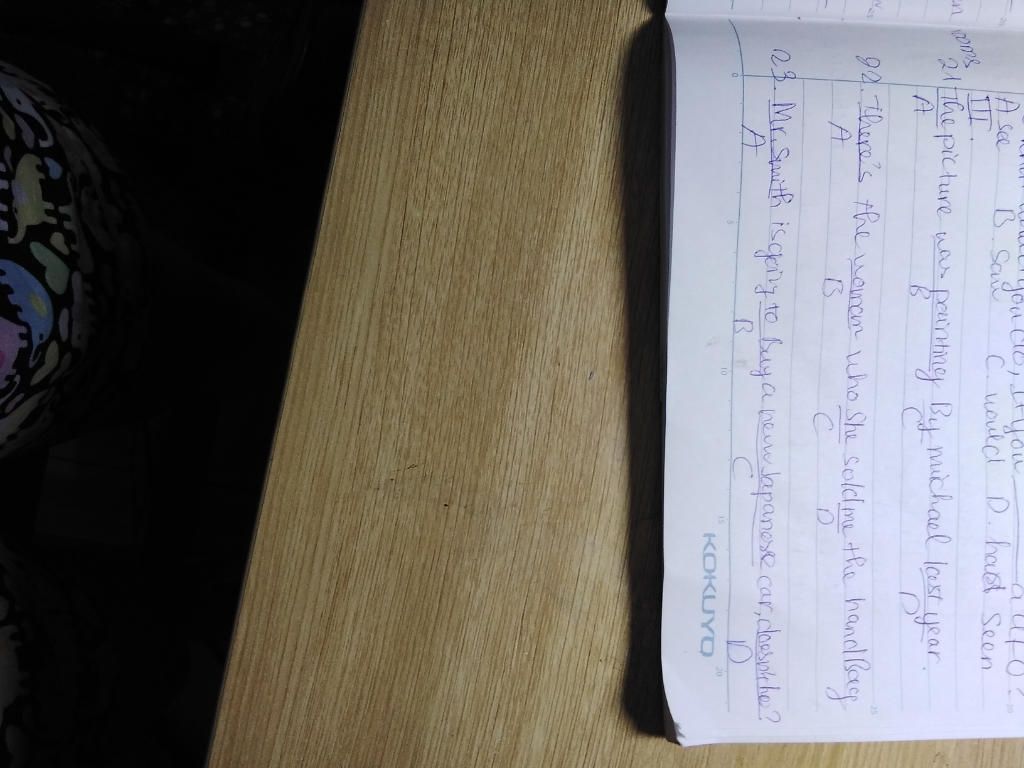 you do, if you ____ a UFO?
A. see B. saw C. would D. had seen
III.
21. The picture was painting By michael last year.
A B C D
22. There's the woman who she sold me the handbag
A B C D
23. Mr. Smith is going to buy a new Japanese car, doesn't he?
A B C D
KOKUYO